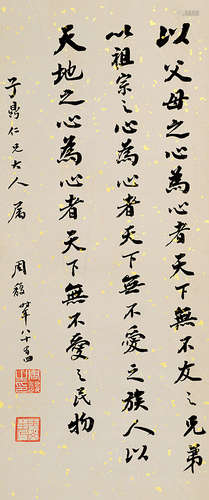 以父母之心為心者天下無不友之兄弟
以祖宗之心為心者天下無不愛之族人以
天地之心為心者天下無不愛之民物
鼎仁兄大人屬
周馥時年八十